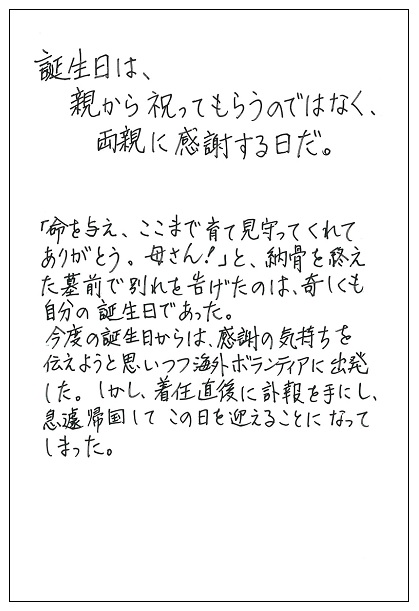 誕生日は、
親から祝ってもらうのではなく、
両親に感謝する日だ。
「命を与え、ここまで育て見守ってくれて
ありがとう。母さん!」と、納骨を終え
た墓前で別れを告げたのは、奇しくも
自分の誕生日であった。
今度の誕生日からは、感謝の気持ちを
伝えようと思いつつ海外ボランティアに出発
した。しかし、着任直後に訃報を手にし、
急遽帰国してこの日を迎えることになって
しまった。